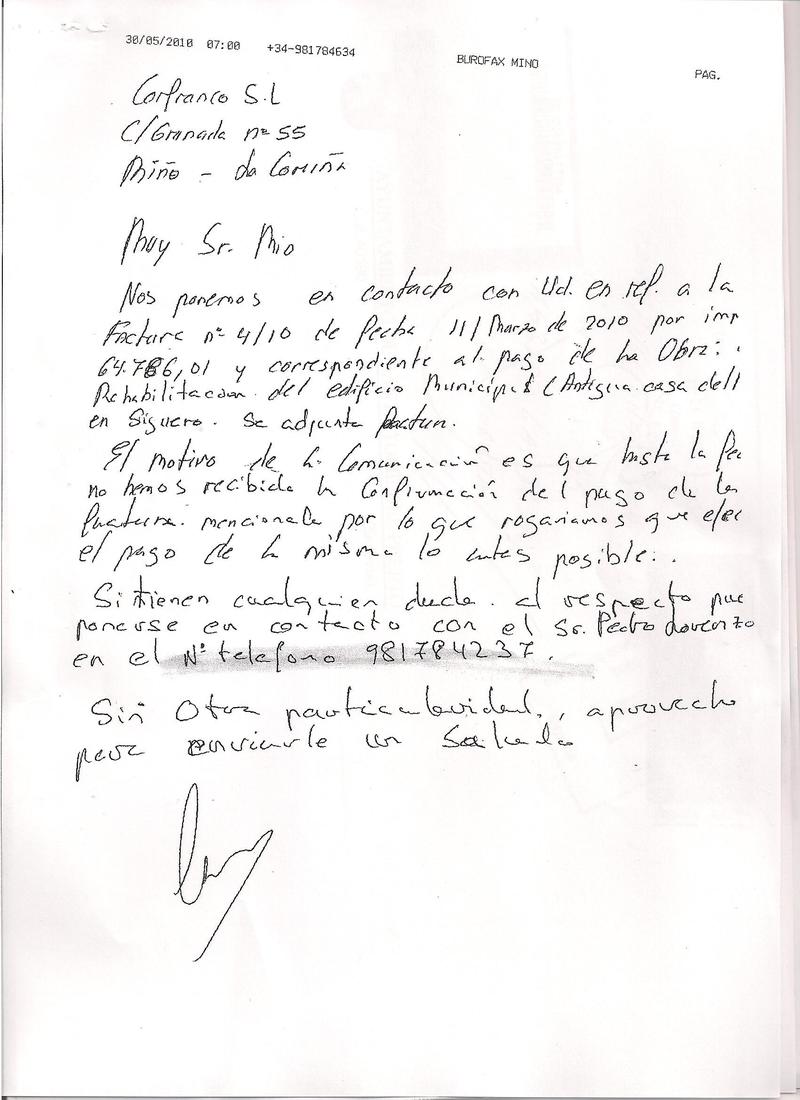 30/05/2010 07:00 +34-981784634 BUROFAX MINO PAG.
Corfranco S.L
C/Granada nº 55
Miño - La Coruña
Muy Sr. Mio
Nos ponemos en contacto con Ud. en ref. a la
Factura nº 4/10 de fecha 11/Marzo de 2010 por imp
64.786,01 y correspondiente al pago de la Obra:
Rehabilitacion del edificio Municipal (Antigua casa del
en Siguero. Se adjunta factura.
El motivo de la Comunicación es que hasta la fec
no hemos recibido la Confirmación del pago de la
factura mencionada por lo que rogariamos que efec
el pago de la misma lo antes posible..
Si tienen cualquier duda al respecto pue
ponerse en contacto con el Sr. Pedro Lorenzo
en el Nº telefono 981784237.
Sin Otra particularidad, aprovecho
para enviarle un Saludo